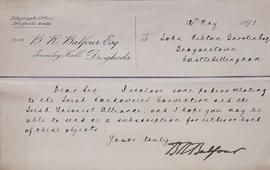 Telegraph Office,
Drogheda
From
B. R. Balfour Esq
Townley Hall
Drogheda.
12th May 1893
To John Ribton Garstin Esq
Braganstown
Castlebellingham
Dear Sir I enclose some papers relating
to the Irish Landowners' Convention and the
Irish Unionist Alliance, and I hope you may be
able to send me a subscription for either or both
of these objects.
Yours truly
B R Balfour